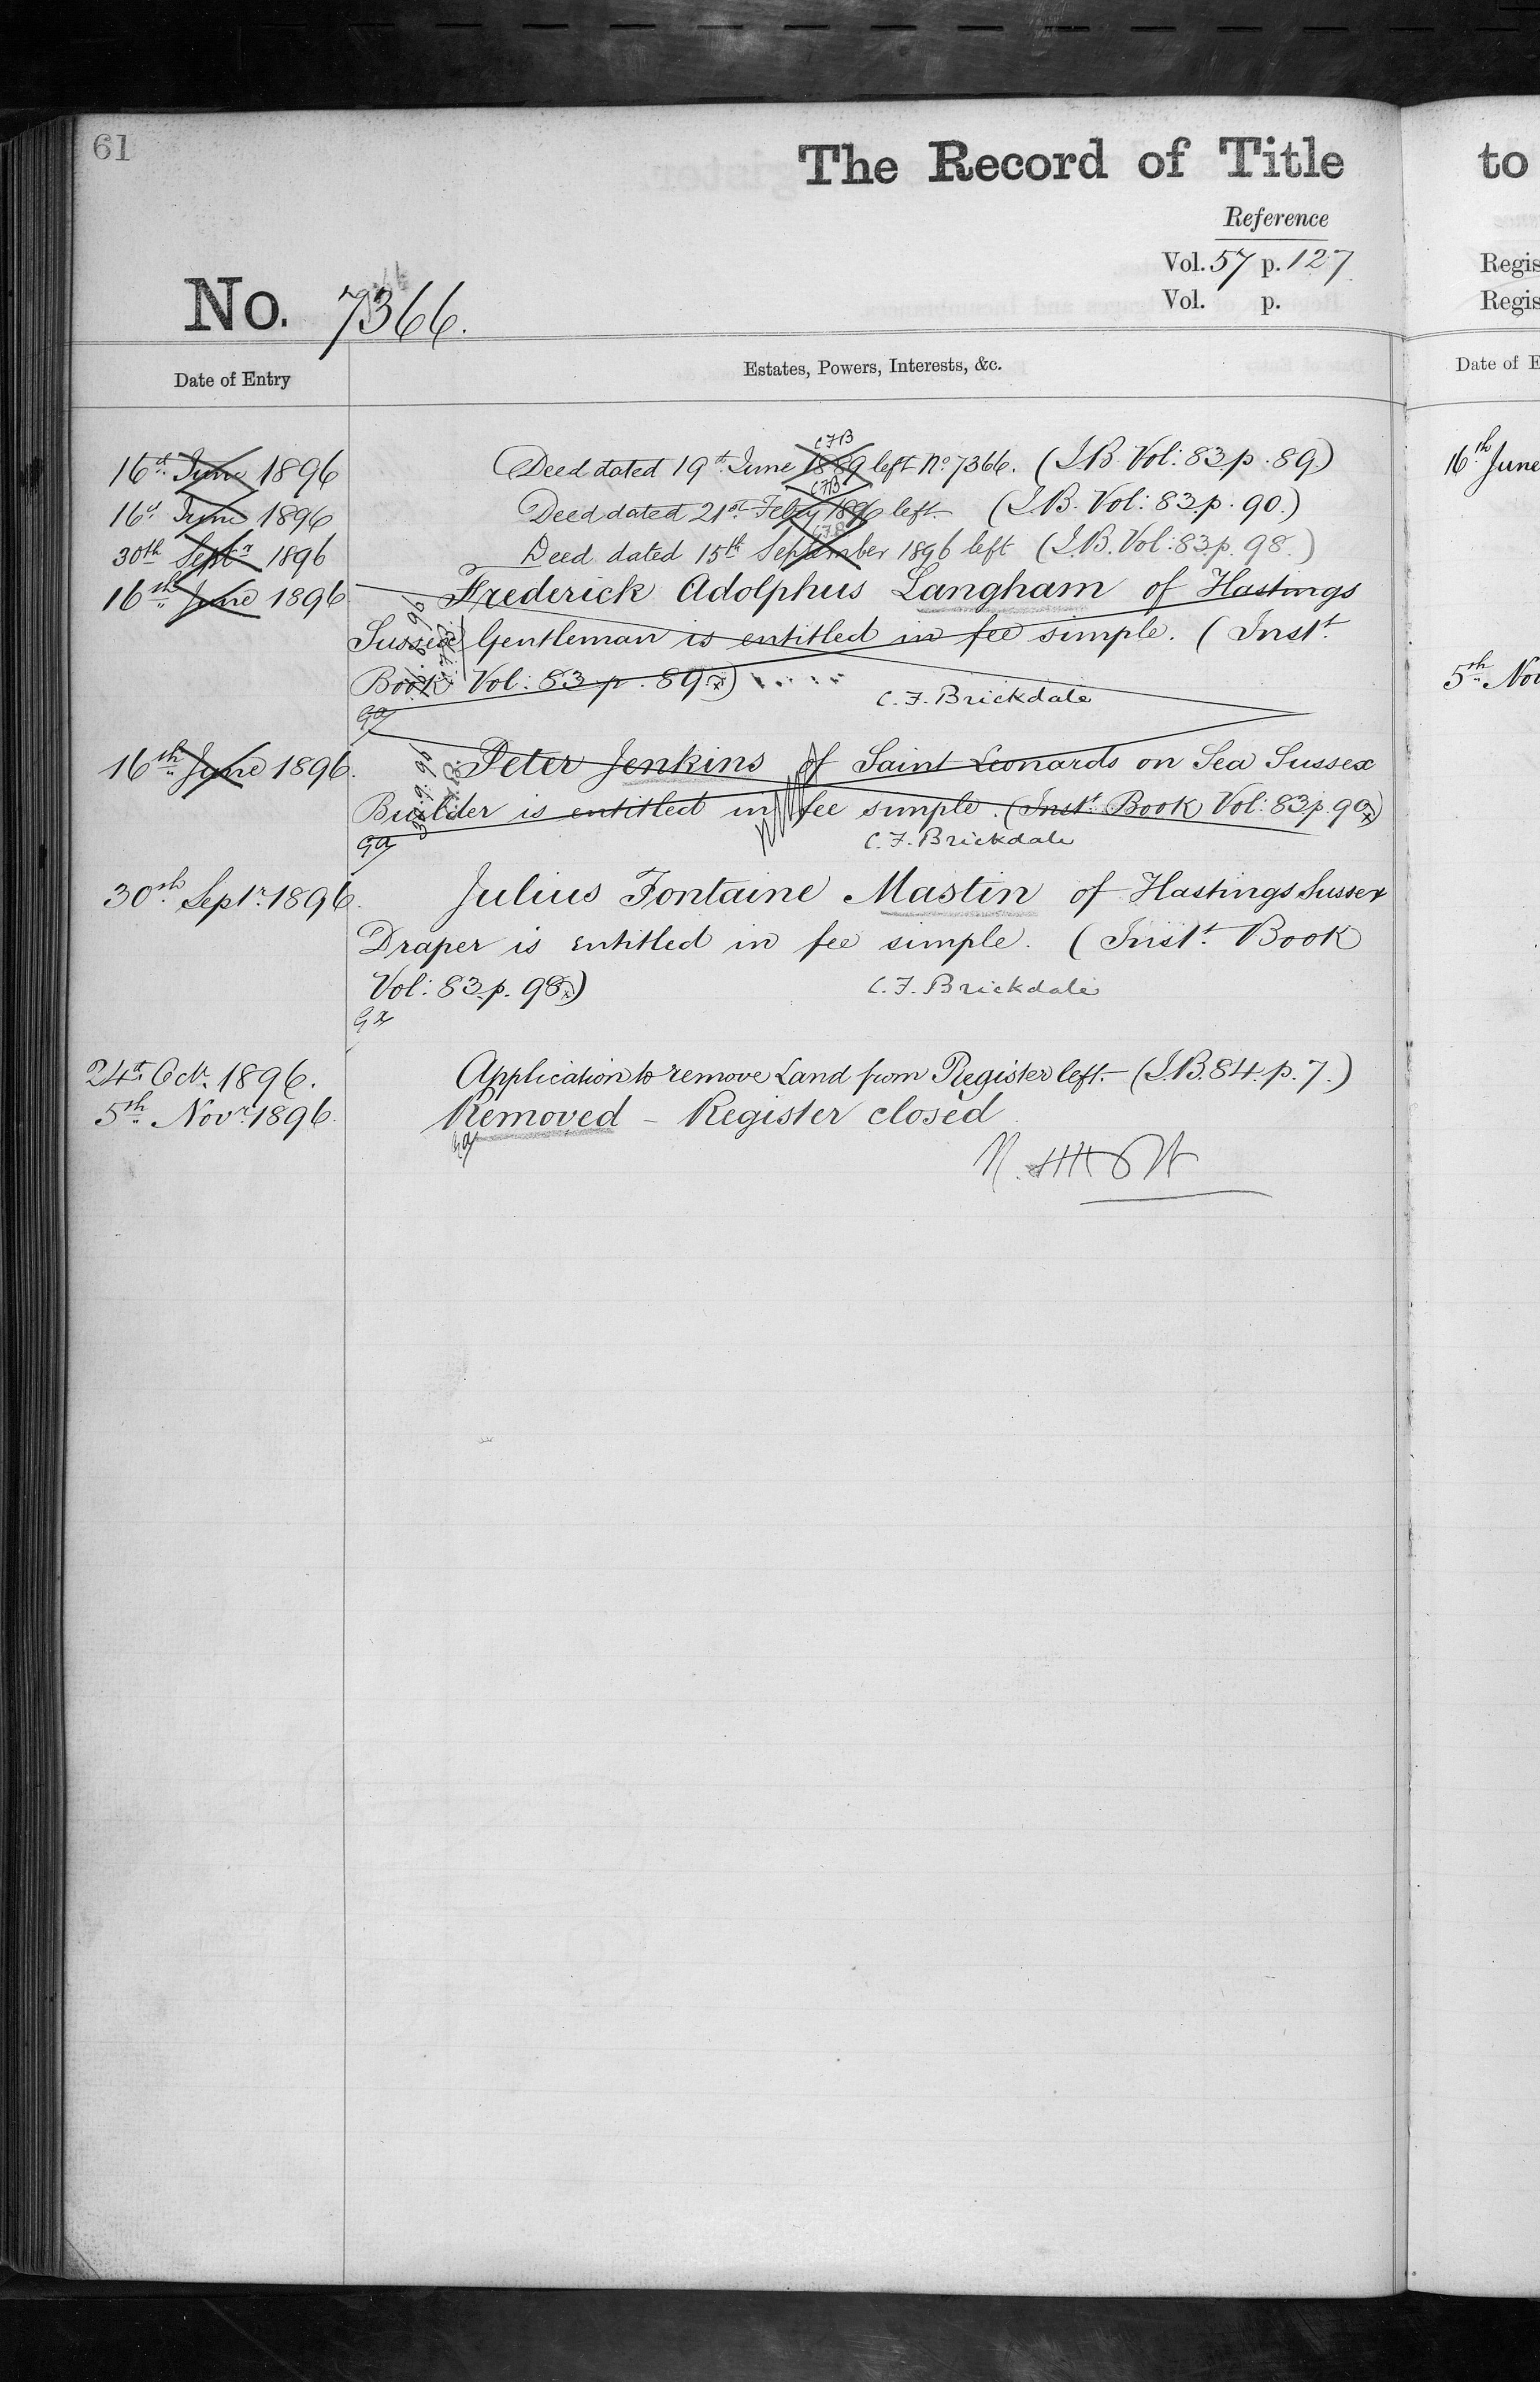 61
The Record of Title
Reference
Vol. 57 p. 127
Vol. p.
No. 7366.
Date of Entry
Estates, Powers, Interests, &c.
CFB
16th June 1896 Deed dated 19th June 1889 left No 7366. (I.B. Vol: 83 p. 89)
CFB
16th June 1896 Deed dated 21st Feby 1896 left (I.B. Vol: 83. p. 90.)
CFB
30th Septr 1896 Deed dated 15th September 1896 left (I.B. Vol: 83. p. 98.)
16th June 1896 Frederick Adolphus Langham of Hastings
Sussex Gentleman is entitled in fee simple. (Instt
Book Vol: 83 p. 89)
C. F. Brickdale
16th June 1896. Peter Jenkins of Saint Leonards on Sea Sussex
Builder is entitled in fee simple. (Instt Book Vol: 83 p. 90)
30.9.96
C. F. Brickdale
30th Septr 1896. Julius Fontaine Mastin of Hastings Sussex
Draper is entitled in fee simple. (Instt Book
Vol: 83. p. 98)
C. F. Brickdale
24th Oct. 1896. Application to remove Land from Register left. (I.B. 84. p. 7.)
5th Novr 1896. Removed – Register closed
to
Regis
Regis
Date of E
16th June
5th Nov